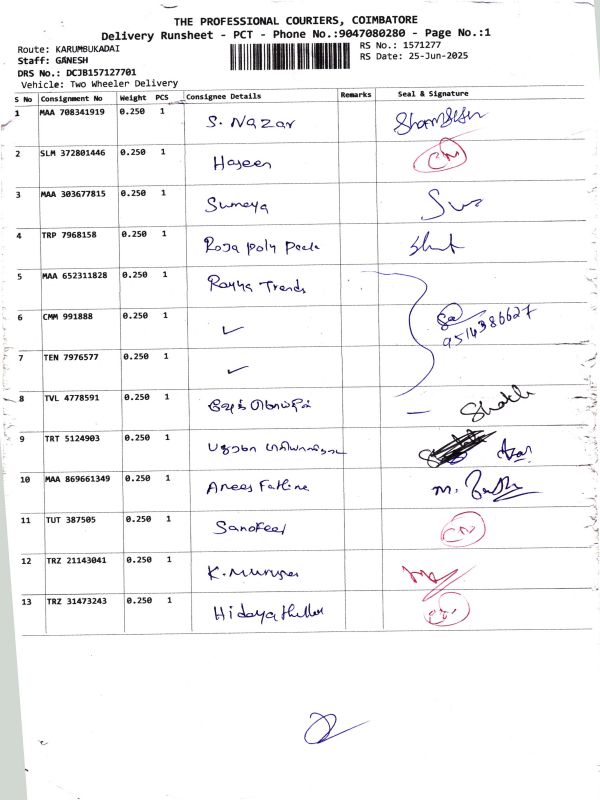 THE PROFESSIONAL COURIERS, COIMBATORE
Delivery Runsheet - PCT - Phone No.:9047080280 - Page No.:1
Route: KARUMBUKADAI
RS No.: 1571277
Staff: GANESH
RS Date: 25-Jun-2025
DRS No.: DCJB157127701
Vehicle: Two Wheeler Delivery
S No Consignment No Weight PCS Consignee Details Remarks Seal & Signature
1 MAA 708341919 0.250 1 S. Nazar
2 SLM 372801446 0.250 1 Haseen CN
3 MAA 303677815 0.250 1 Sumaya
4 TRP 7968158 0.250 1 Roja poly
5 MAA 652311828 0.250 1 Trends
6 CMM 991888 0.250 1 ✓ 9514386627
7 TEN 7976577 0.250 1 ✓
8 TVL 4778591 0.250 1
9 TRT 5124903 0.250 1 Azar
10 MAA 869661349 0.250 1 Anees Fathima
11 TUT 387505 0.250 1 CN
12 TRZ 21143041 0.250 1 K. Murugan
13 TRZ 31473243 0.250 1 Hidayathullah